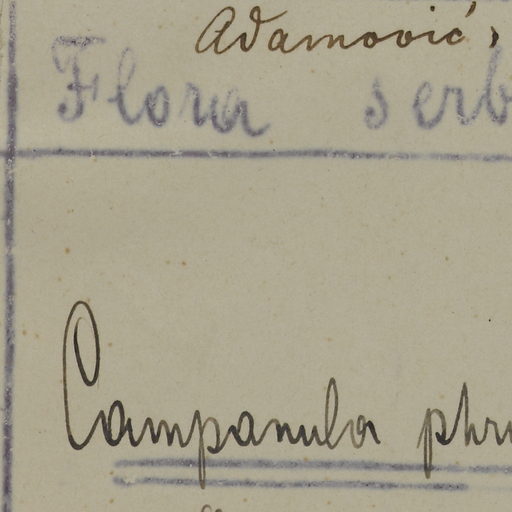 Adamović,
Flora serb
Campanula phr